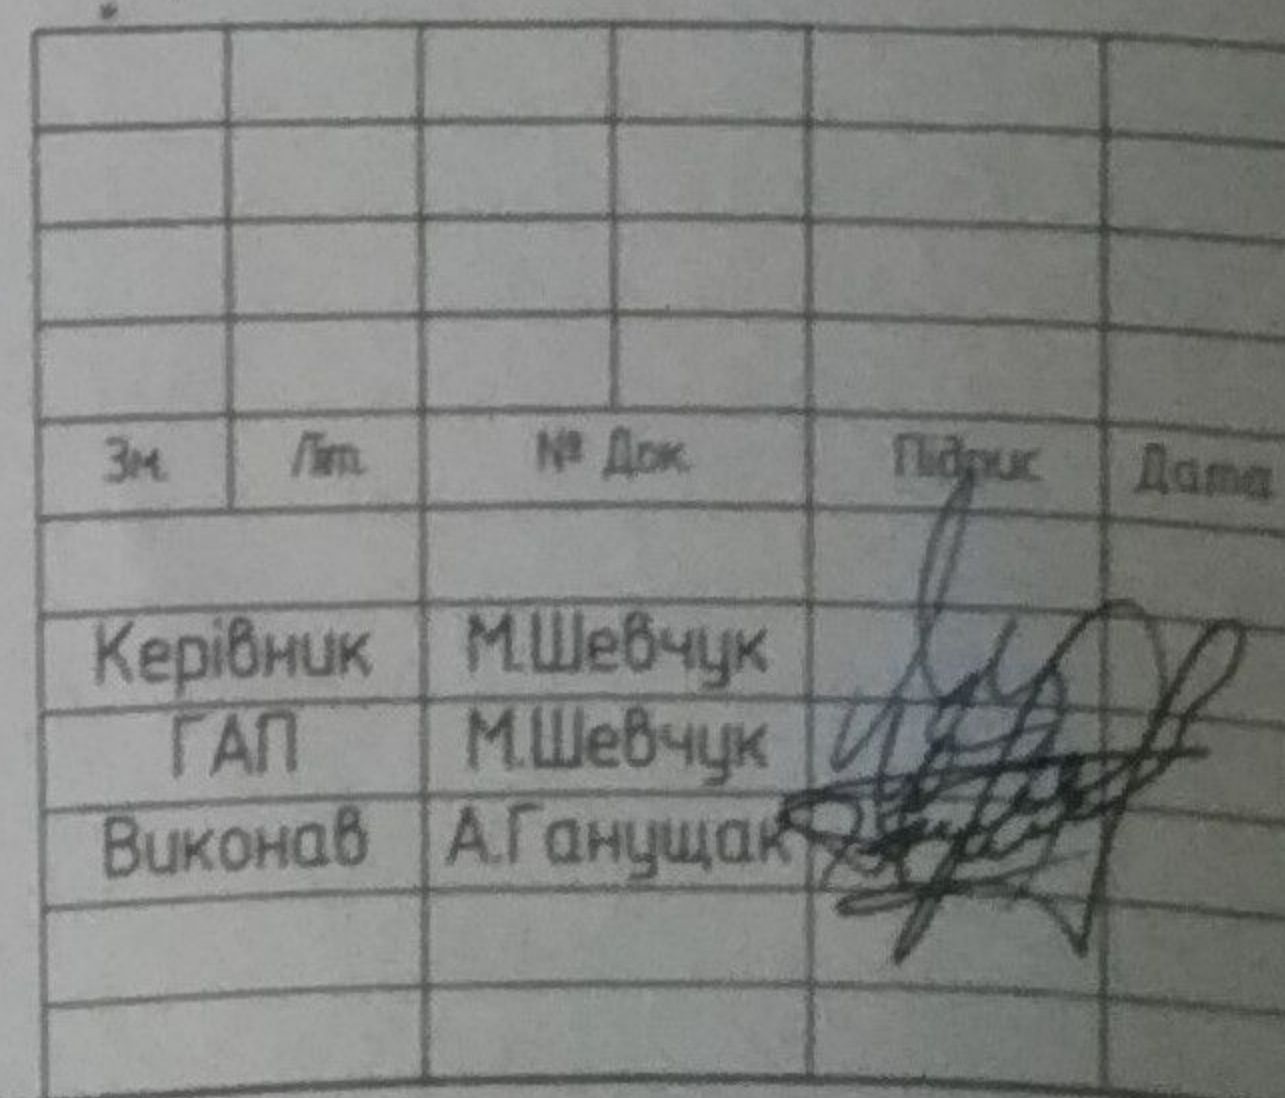 Зм. Літ. № Док. Підпис Дата
Керівник М.Шевчук
ГАП М.Шевчук
Виконав А.Ганущак